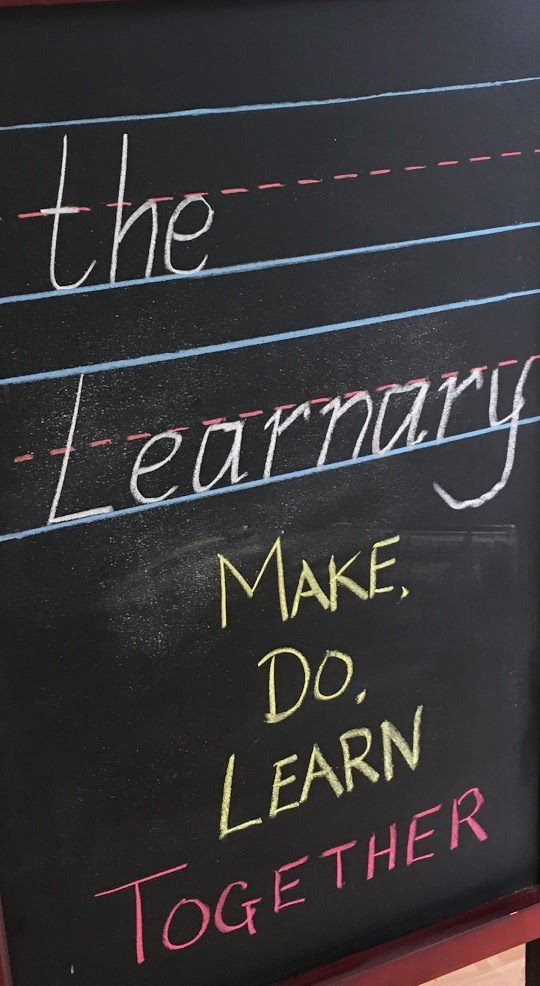 the
Learnary
MAKE.
DO.
LEARN
TOGETHER